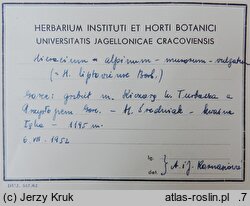 HERBARIUM INSTITUTI ET HORTI BOTANICI
UNIVERSITATIS JAGELLONICAE CRACOVIENSIS
alpinum - murorum - vulgatum
(= H. liptoviense Borb.)
Gorce: grzbiet m. Kiczorą k. Turbacza a
Przysłopem Gor. - H. Średniak - kwaśna
łąka - 1195 m.
6. VIII. 1952
le
det. } A. i J. Kornasiowie
(c) Jerzy Kruk
atlas-roslin.pl .7